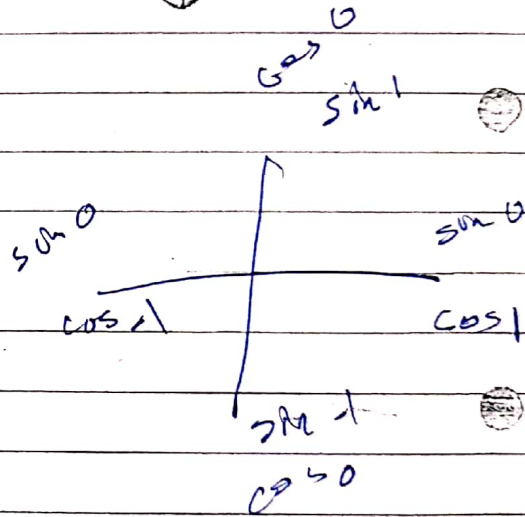 cos 0
sin 1
sin 0
sin 0
cos -1
cos 1
sin -1
cos 0